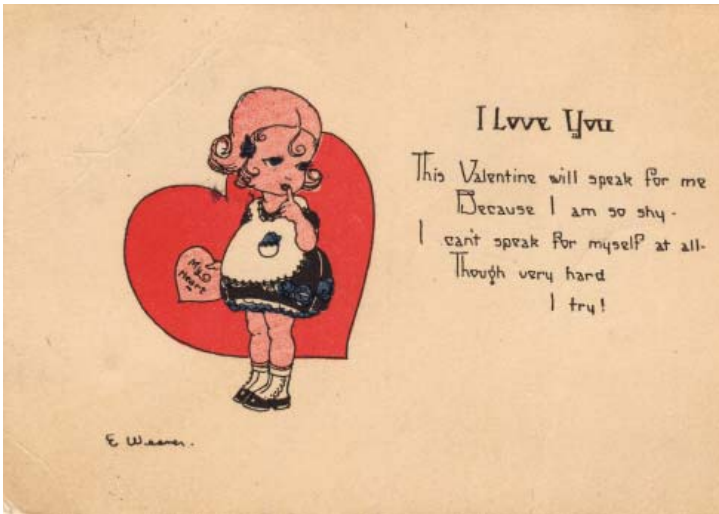 I Love You
This Valentine will speak for me
Because I am so shy.
I can't speak for myself at all-
Though very hard
I try!
My
Heart
E Weaver.